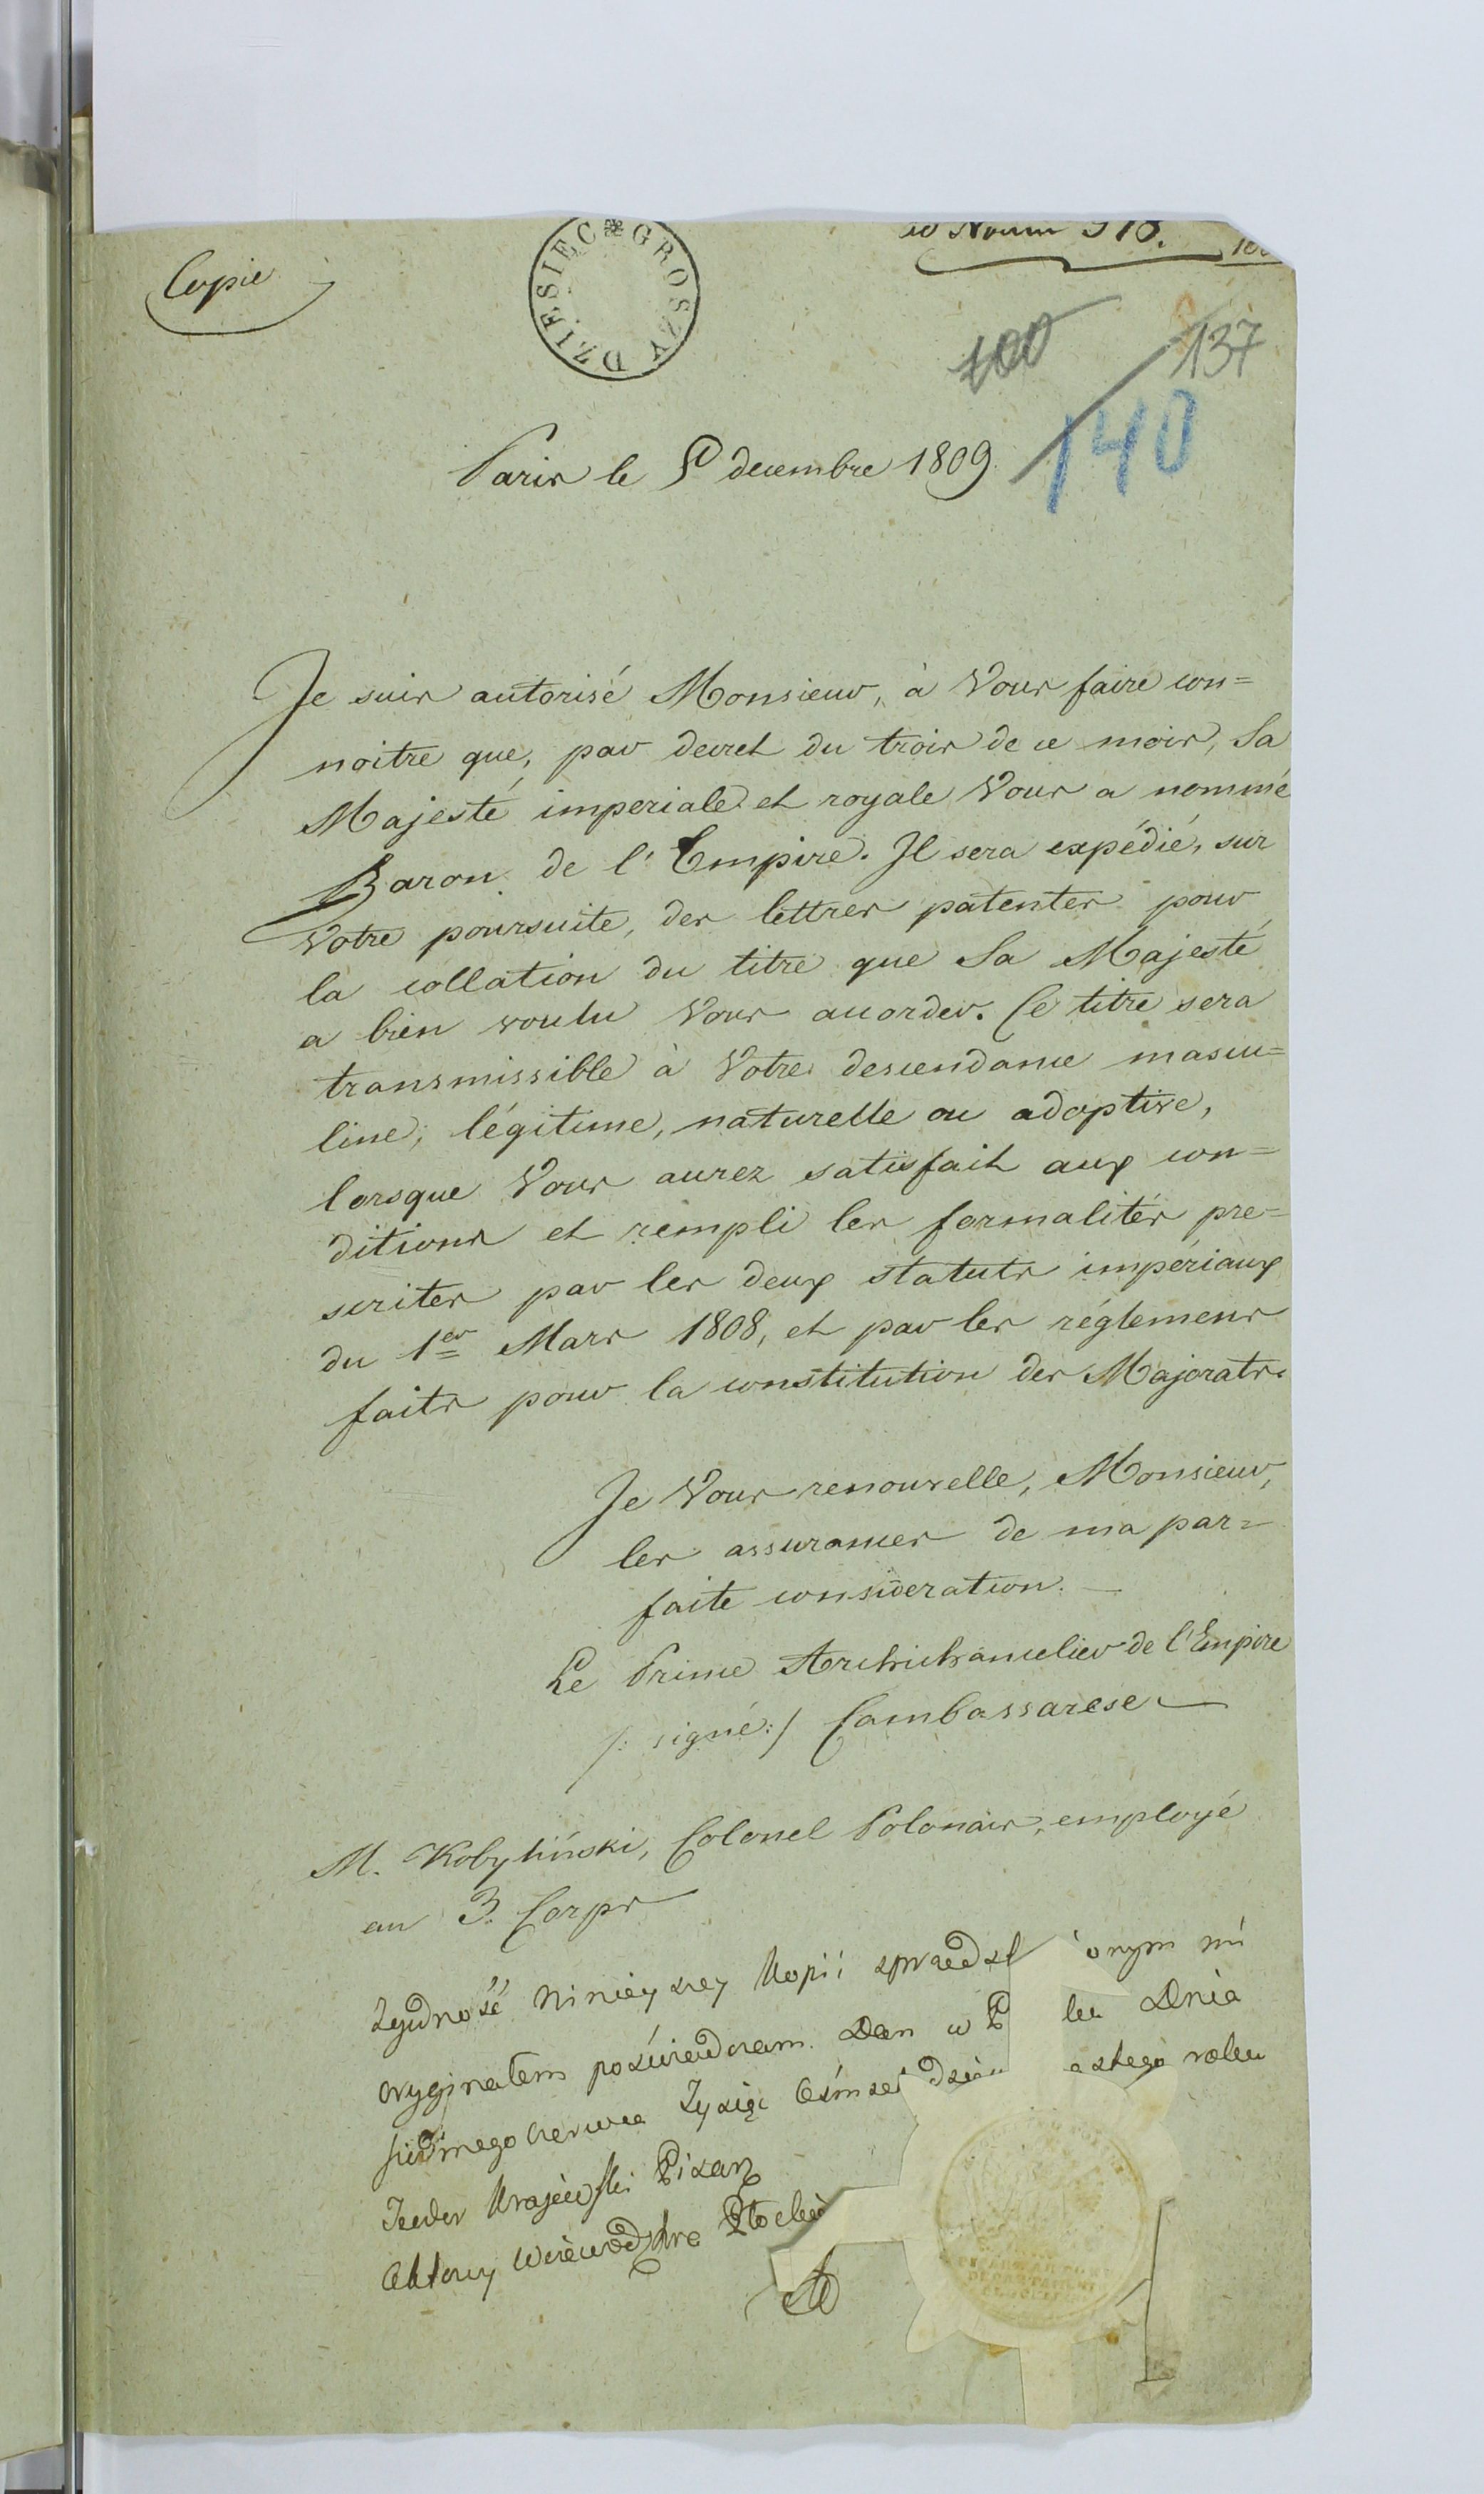 Copie
DZIESIĘC GROSZY
100
137
140
Paris le 5 decembre 1809.
Je suis autorisé Monsieur, à Vous faire con=
noitre que, par decret du trois de ce mois, Sa
Majesté imperiale et royale Vous a nommé
Baron de l'Empire. Il sera expédié, sur
Votre poursuite, des lettres patentes pour
la collation du titre que Sa Majesté
a bien voulu Vous accorder. Ce titre sera
transmissible à Votre descendance mascu=
line, légitime, naturelle ou adoptive,
lorsque Vous aurez satisfait aux con=
ditions et rempli les formalités pre=
scrites par les deux statuts impériaux
du 1er Mars 1808, et par les réglemens
faits pour la constitution des Majorats.
Je Vous renouvelle, Monsieur,
les assurances de ma par=
faite consideration. —
Le Prince Archichancelier de l'Empire
/: signé :/ Cambassarese
M. Kobyliński, Colonel Polonais, employé
au 3. Corps
Zgodność Ninieyszey Kopii zprzedst ionym mi
oryginałem poświadczam. Dan w P ku Dnia
siódmego Czerwca Tysiąc Ośmset dzie astego roku
Krajewski Pisarz
Aktowy Woiewództwa Płockie